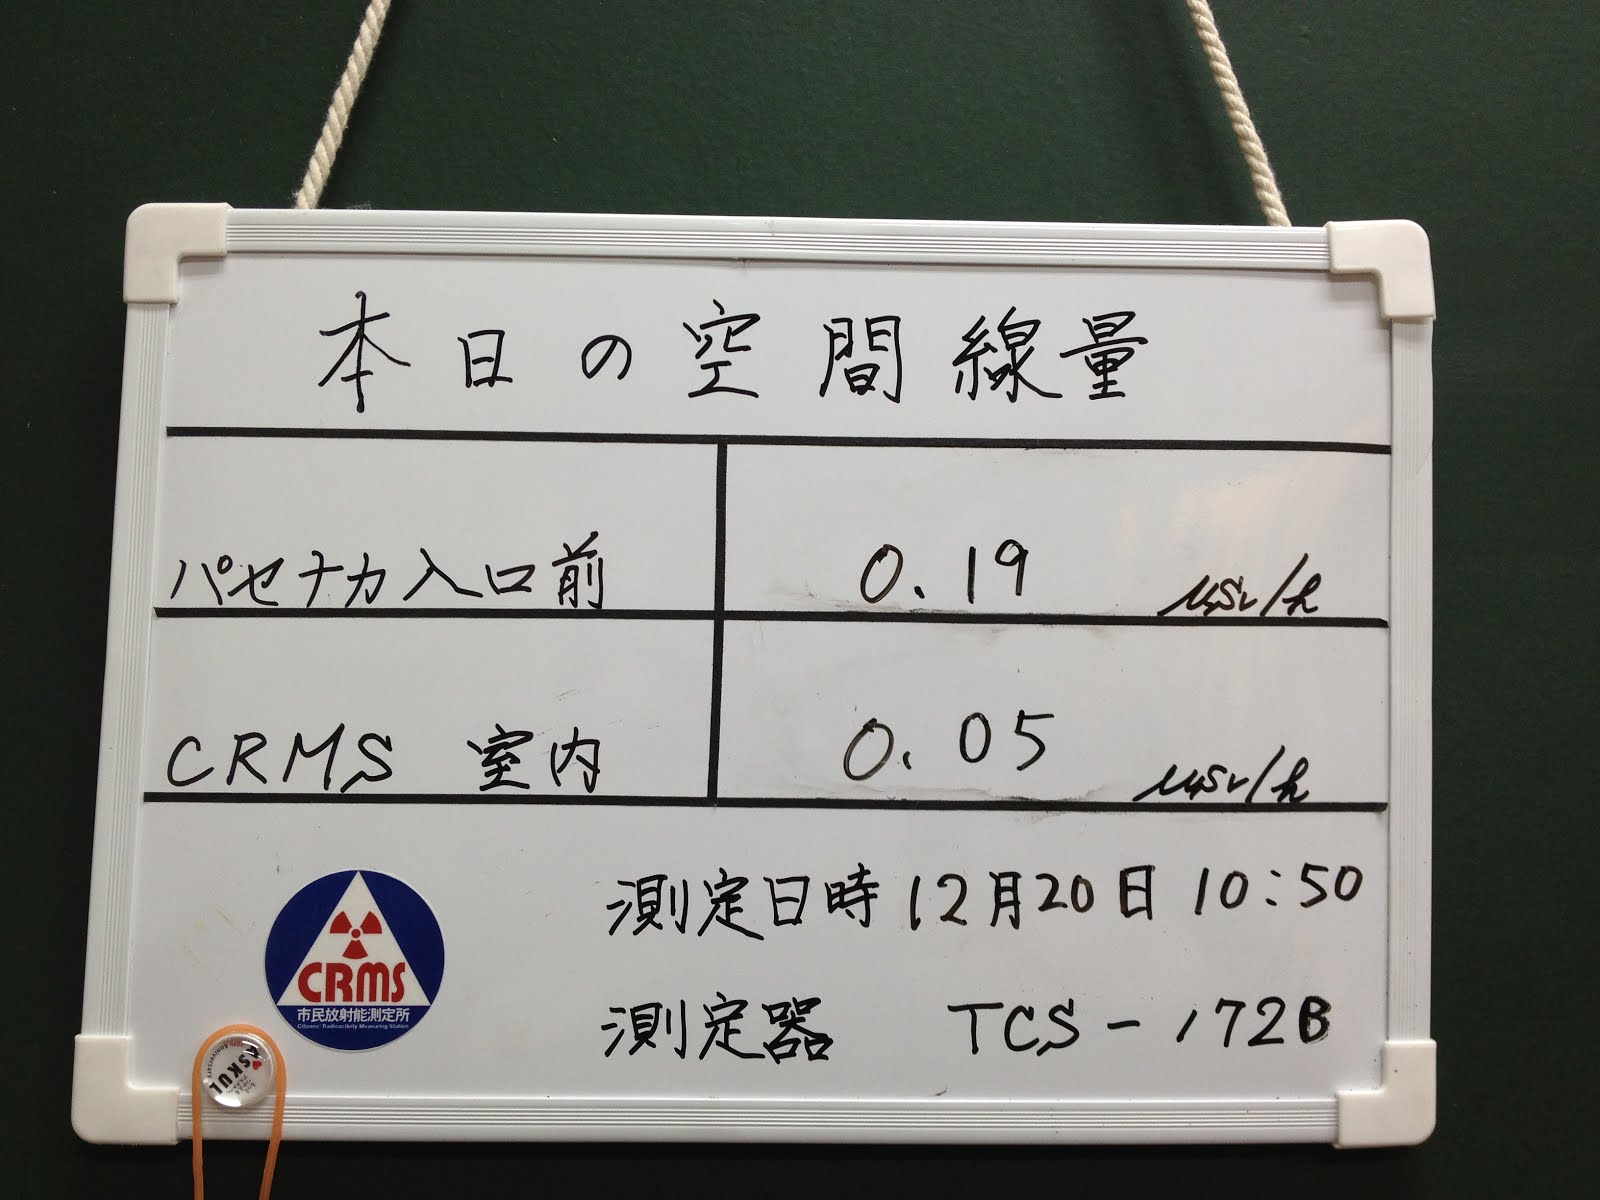 本日の空間線量
パセナカ入口前 0.19 μSv/h
CRMS 室内 0.05 μSv/h
測定日時 12月20日 10:50
測定器 TCS-172B
CRMS
市民放射能測定所
Citizens' Radioactivity Measuring Station
ASKUL